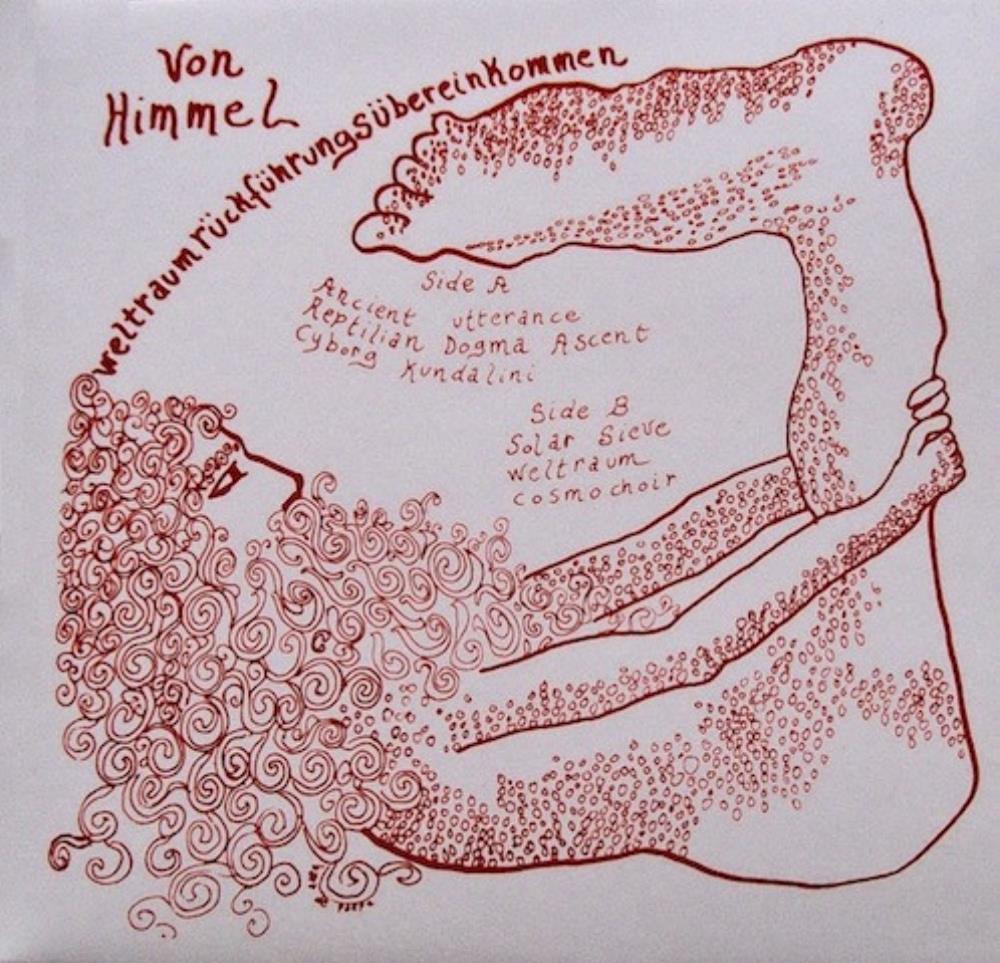 Von
HimmeL
weltraumrückführungsübereinkommen
Side A
Ancient utterance
Reptilian Dogma Ascent
Cyborg Kundalini
Side B
Solar Sieve
Weltraum
cosmochoir